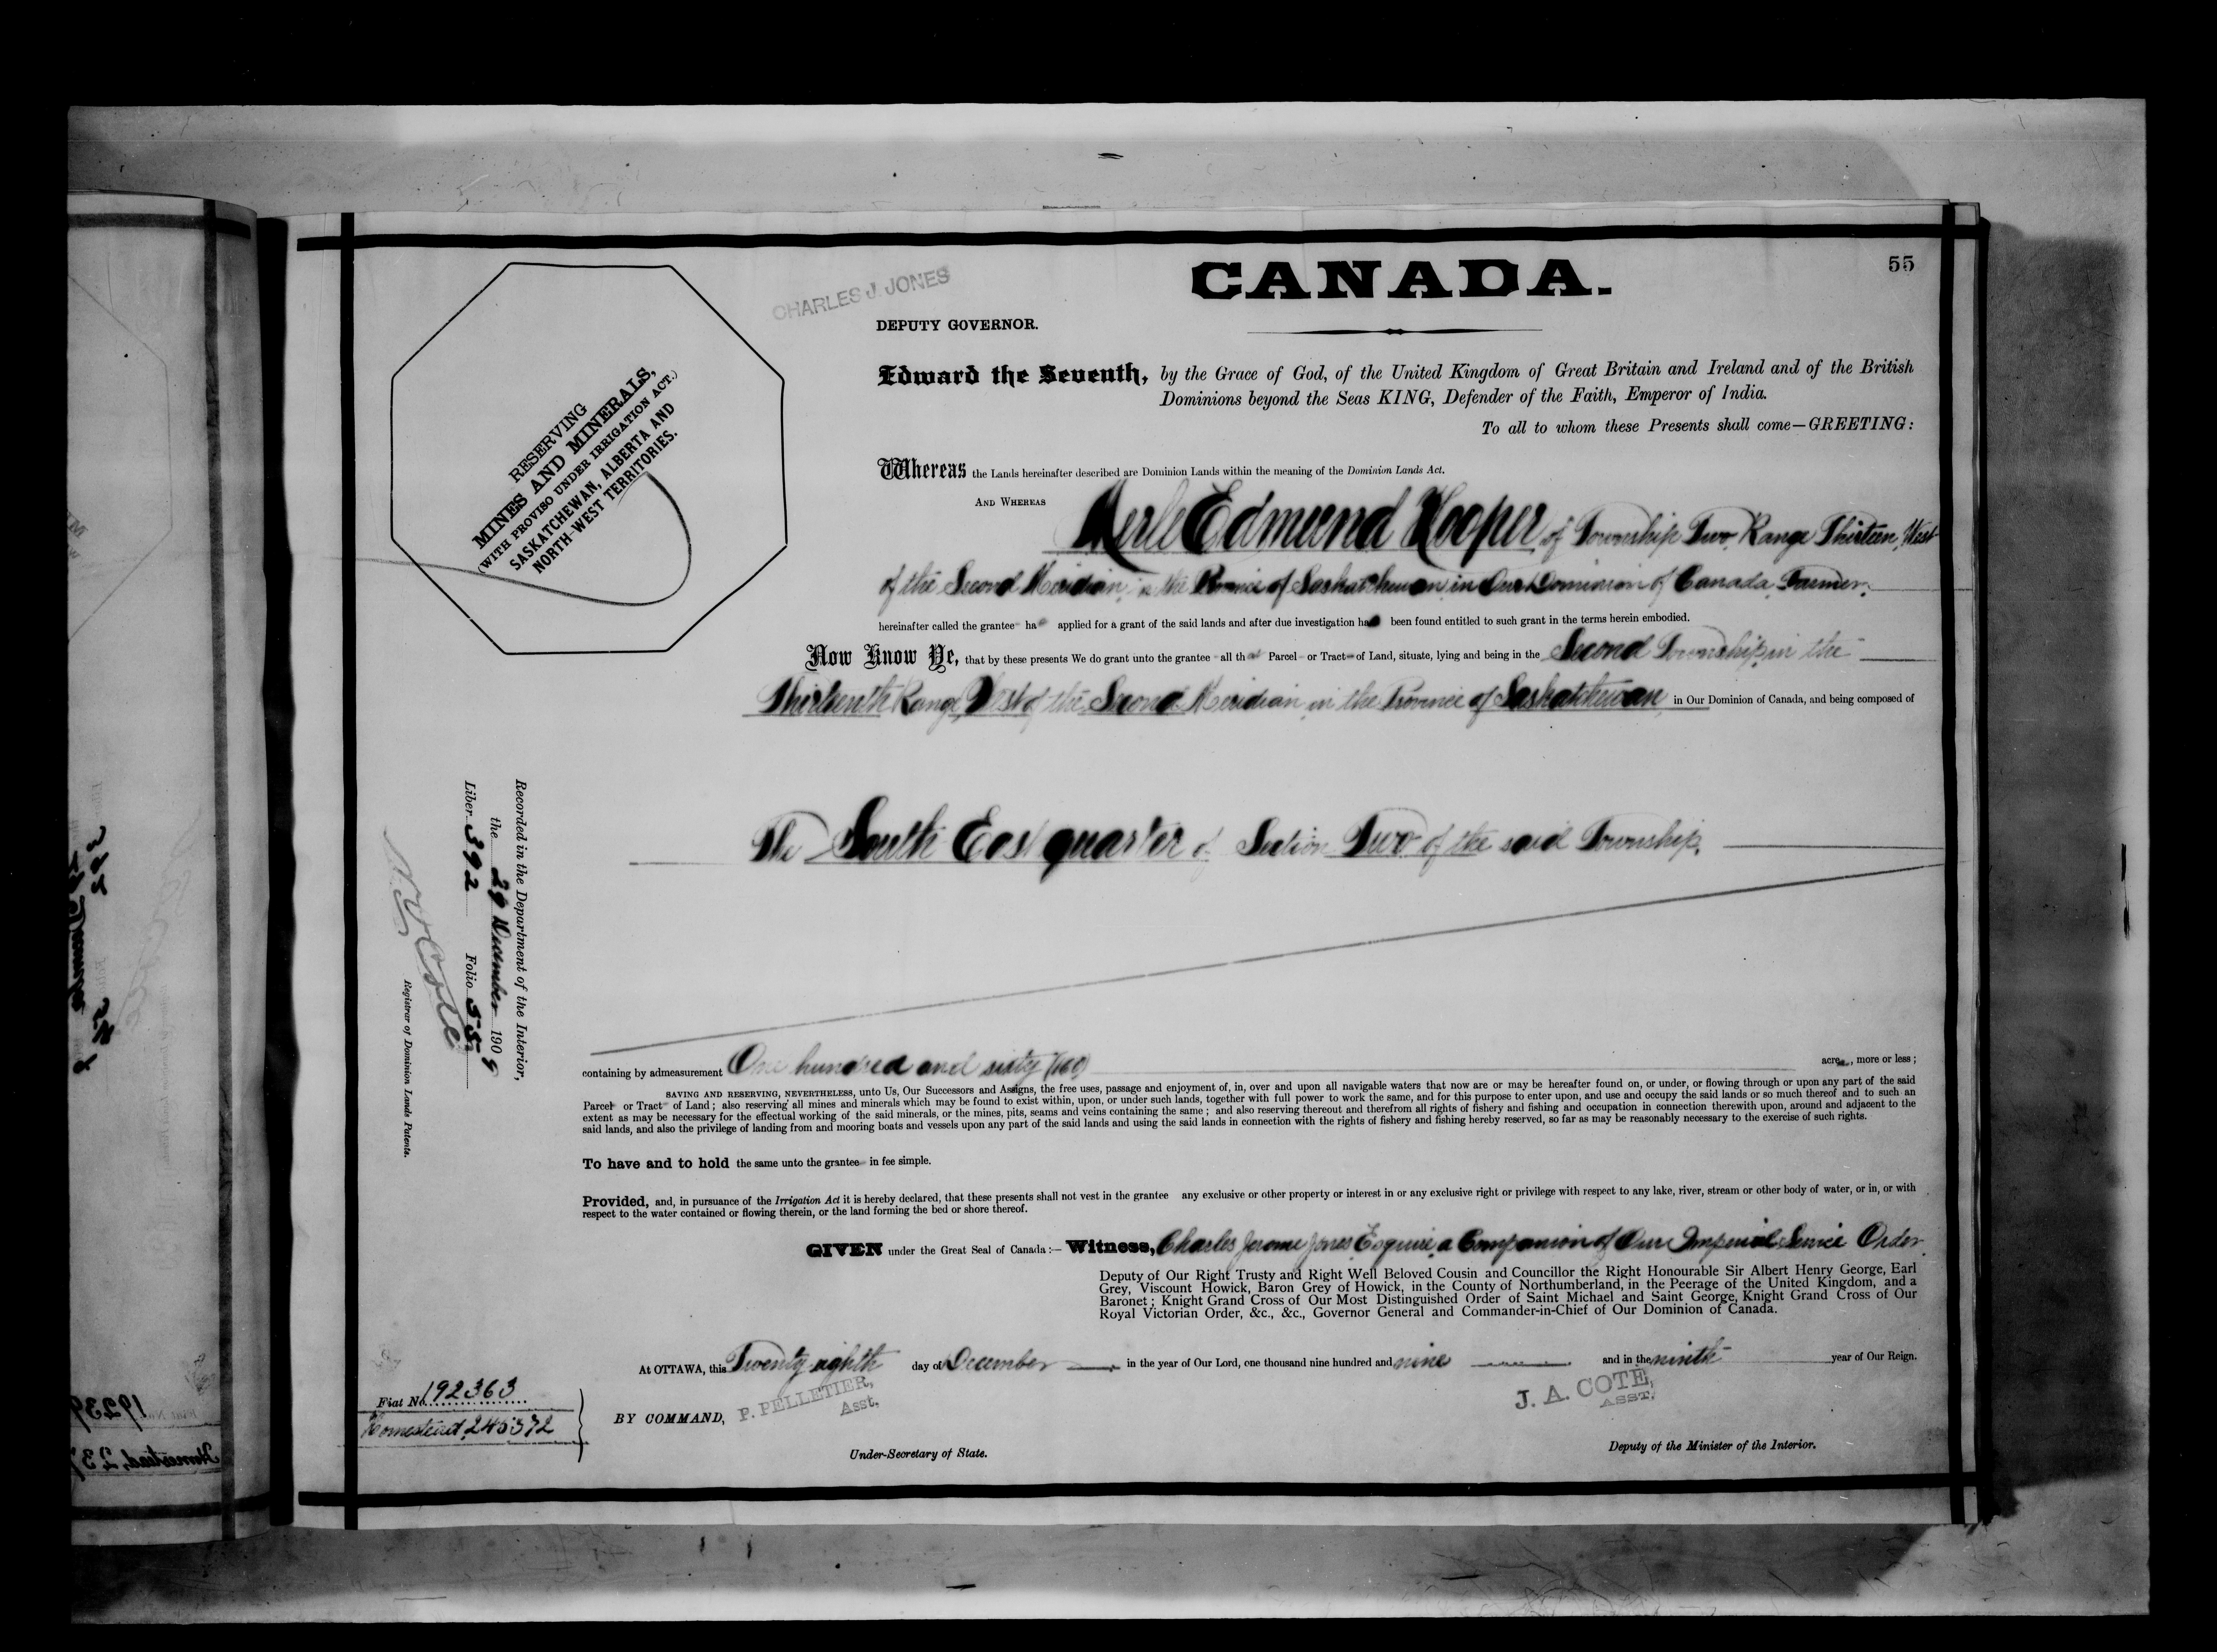 55
CANADA.
CHARLES J. JONES
DEPUTY GOVERNOR.
Edward the Seventh, by the Grace of God, of the United Kingdom of Great Britain and Ireland and of the British
Dominions beyond the Seas KING, Defender of the Faith, Emperor of India.
To all to whom these Presents shall come—GREETING:
RESERVING
MINES AND MINERALS,
(WITH PROVISO UNDER IRRIGATION ACT.)
SASKATCHEWAN, ALBERTA AND
NORTH-WEST TERRITORIES.
Whereas the Lands hereinafter described are Dominion Lands within the meaning of the Dominion Lands Act.
AND WHEREAS Merle Edmund Hooper of Township Two Range Thirteen, West
of the Second Meridian, in the Province of Saskatchewan in Our Dominion of Canada, Farmer,
hereinafter called the grantee ha applied for a grant of the said lands and after due investigation ha been found entitled to such grant in the terms herein embodied.
Now Know Ye, that by these presents We do grant unto the grantee all that Parcel or Tract of Land, situate, lying and being in the Second Township, in the
Thirteenth Range, West of the Second Meridian, in the Province of Saskatchewan in Our Dominion of Canada, and being composed of
The South East quarter of Section Two of the said Township.
Recorded in the Department of the Interior,
the 29 December 1909
Liber 392 Folio 55
N O Cote
Registrar of Dominion Lands Patents.
containing by admeasurement One hundred and sixty (160) acres, more or less;
SAVING AND RESERVING, NEVERTHELESS, unto Us, Our Successors and Assigns, the free uses, passage and enjoyment of, in, over and upon all navigable waters that now are or may be hereafter found on, or under, or flowing through or upon any part of the said
Parcel or Tract of Land; also reserving all mines and minerals which may be found to exist within, upon, or under such lands, together with full power to work the same, and for this purpose to enter upon, and use and occupy the said lands or so much thereof and to such an
extent as may be necessary for the effectual working of the said minerals, or the mines, pits, seams and veins containing the same; and also reserving thereout and therefrom all rights of fishery and fishing and occupation in connection therewith upon, around and adjacent to the
said lands, and also the privilege of landing from and mooring boats and vessels upon any part of the said lands and using the said lands in connection with the rights of fishery and fishing hereby reserved, so far as may be reasonably necessary to the exercise of such rights.
To have and to hold the same unto the grantee in fee simple.
Provided, and, in pursuance of the Irrigation Act it is hereby declared, that these presents shall not vest in the grantee any exclusive or other property or interest in or any exclusive right or privilege with respect to any lake, river, stream or other body of water, or in, or with
respect to the water contained or flowing therein, or the land forming the bed or shore thereof.
GIVEN under the Great Seal of Canada:— Witness, Charles Jerome Jones, Esquire, a Companion of Our Imperial Service Order
Deputy of Our Right Trusty and Right Well Beloved Cousin and Councillor the Right Honourable Sir Albert Henry George, Earl
Grey, Viscount Howick, Baron Grey of Howick, in the County of Northumberland, in the Peerage of the United Kingdom, and a
Baronet; Knight Grand Cross of Our Most Distinguished Order of Saint Michael and Saint George, Knight Grand Cross of Our
Royal Victorian Order, &c., &c., Governor General and Commander-in-Chief of Our Dominion of Canada.
At OTTAWA, this Twenty eighth day of December in the year of Our Lord, one thousand nine hundred and nine and in the ninth year of Our Reign.
Fiat No. 192363
Homestead, 245372
BY COMMAND, P. PELLETIER,
Asst.
Under-Secretary of State.
J. A. COTE,
ASST.
Deputy of the Minister of the Interior.